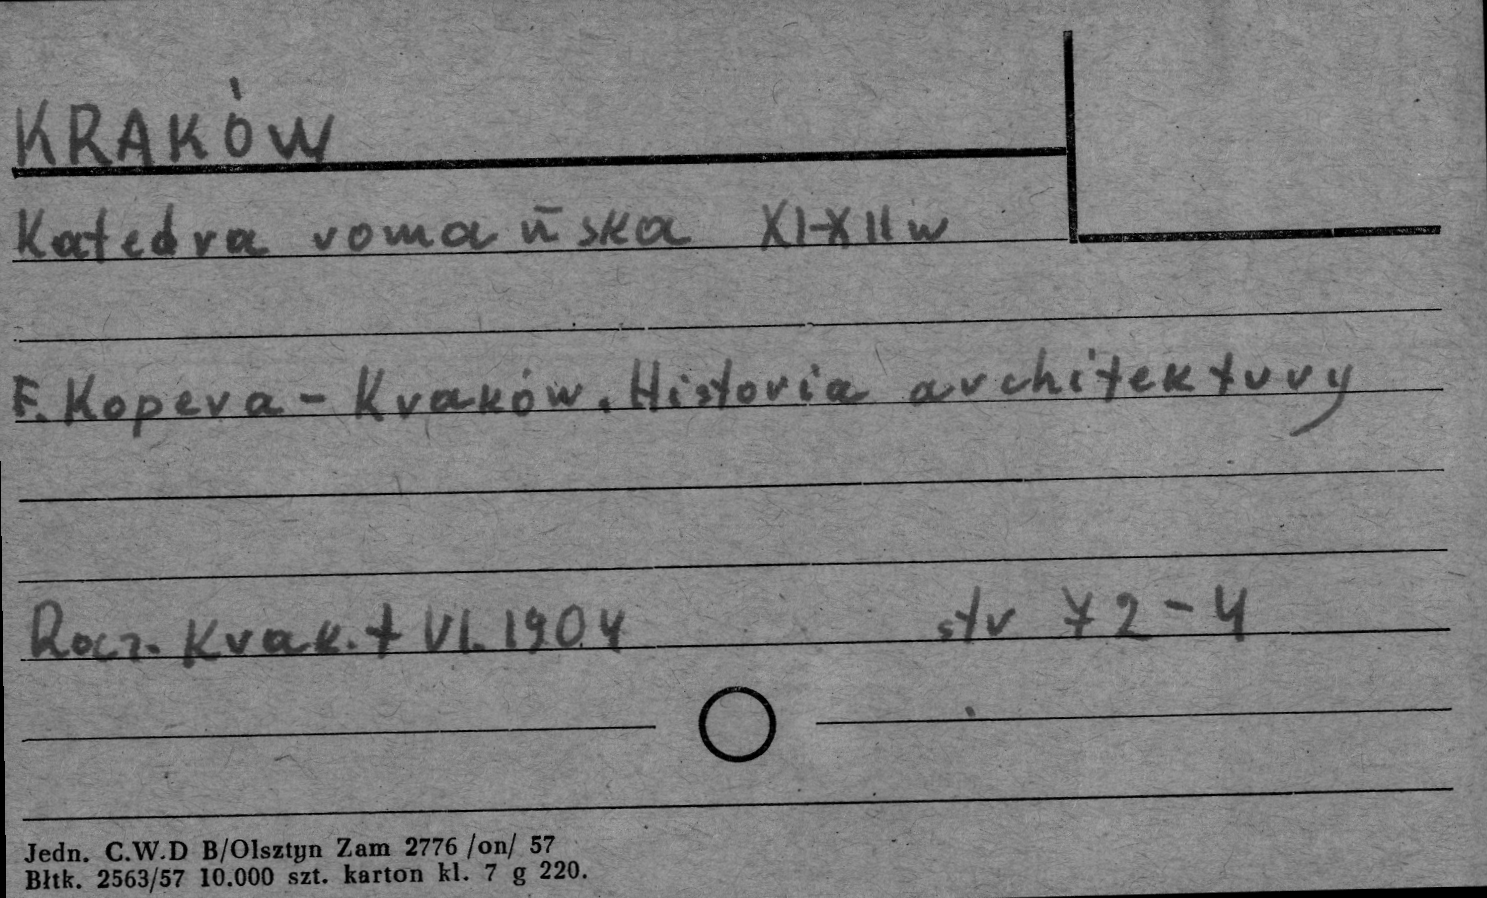 KRAKÓW
Katedra romańska XI-XII w
F. Kopera - Kraków. Historia architektury
Rocz. Krak. t VI. 1904 str 72-4
Jedn. C.W.D B/Olsztyn Zam 2776 /on/ 57
Błtk. 2563/57 10.000 szt. karton kl. 7 g 220.